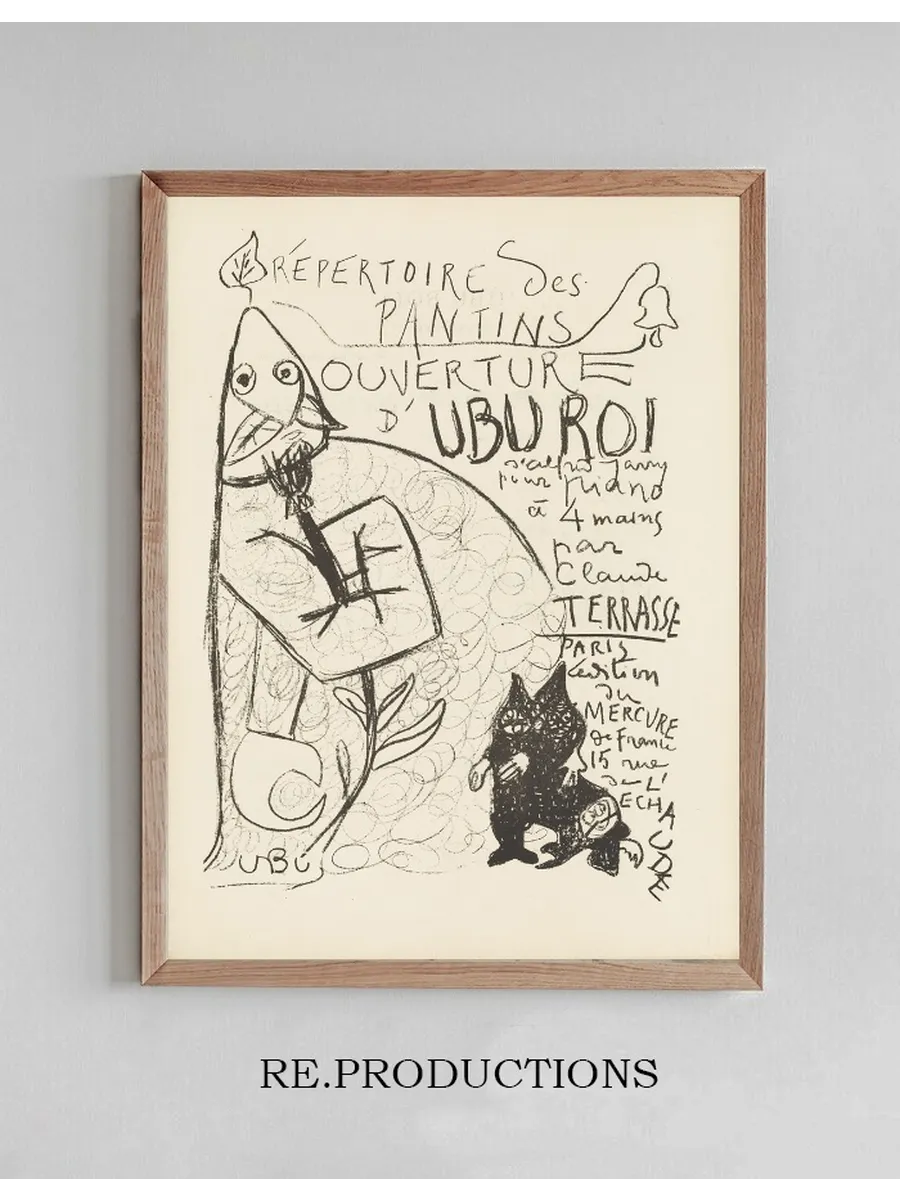 RÉPERTOIRE des
PANTINS
OUVERTURE
D'UBU ROI
d'alfred Jarry
pour piano
à 4 mains
par
Claude
TERRASSE
PARIS
édition
du
MERCURE
de France
15 rue
de L'
ECHAUDE
UBU
RE.PRODUCTIONS